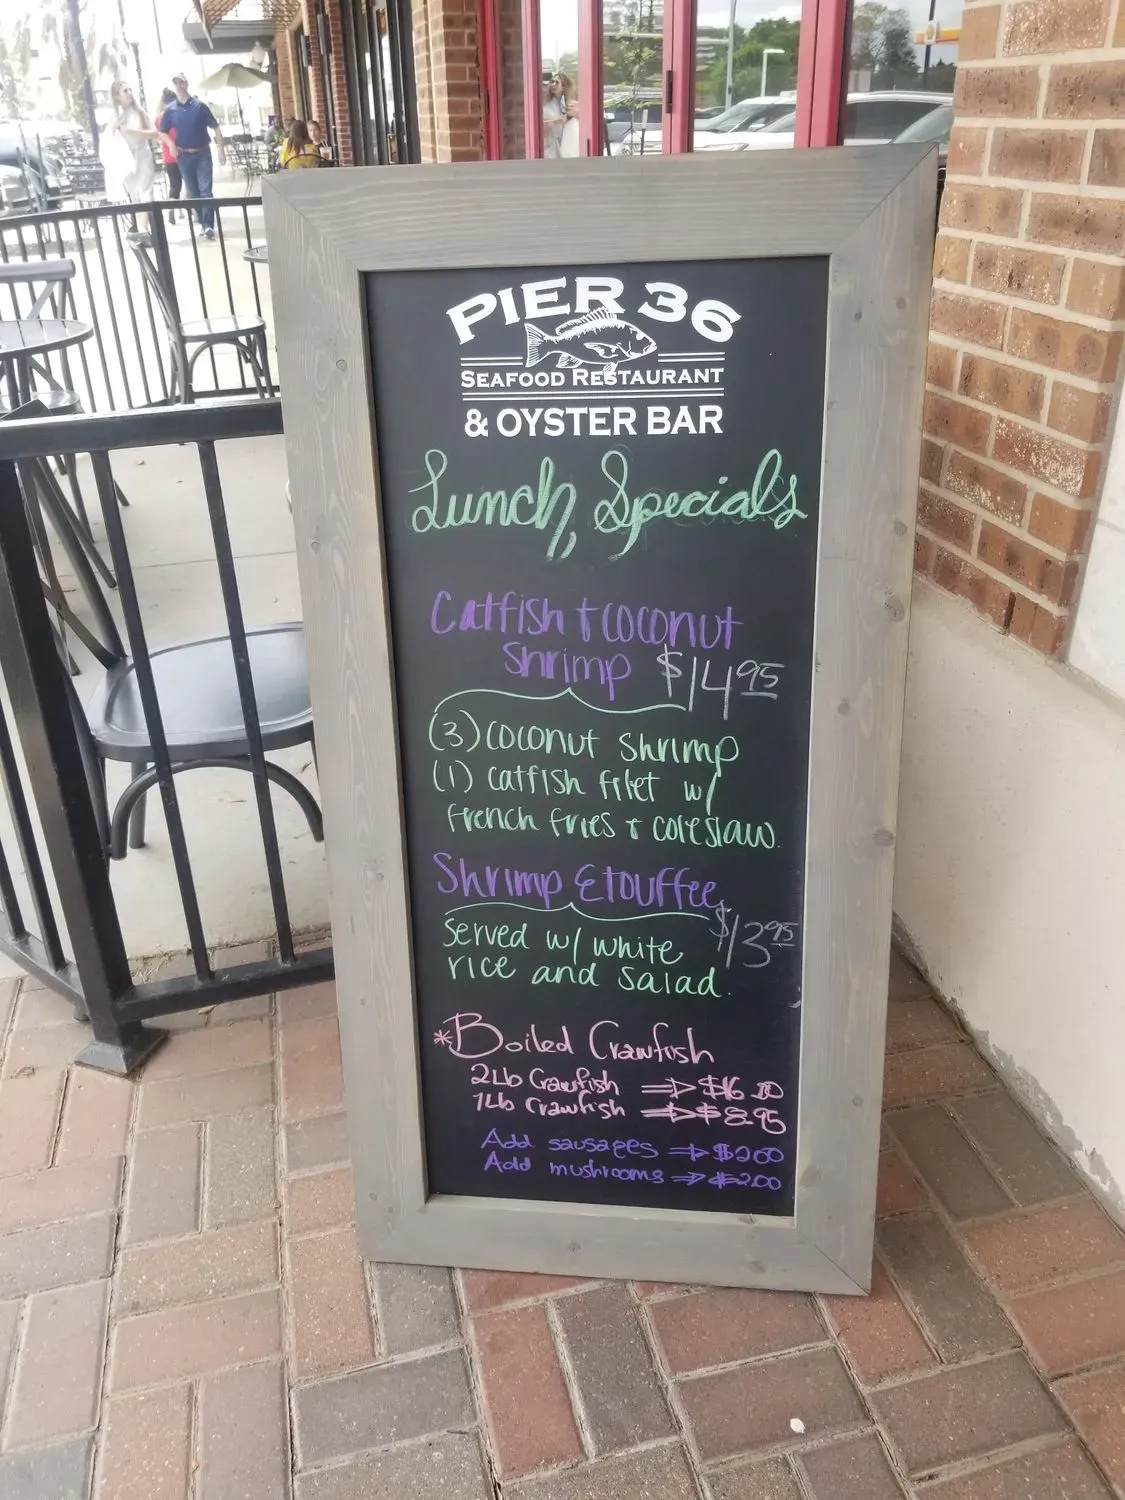 PIER 36
SEAFOOD RESTAURANT
& OYSTER BAR
Lunch Specials
Catfish + coconut
Shrimp $14.95
(3) coconut shrimp
(1) catfish filet w/
french fries + coleslaw.
Shrimp Etouffee
$13.95
Served w/ white
rice and salad.
*Boiled Crawfish
2Lb Crawfish ⇒ $16.00
1Lb Crawfish ⇒ $8.95
Add sausages ⇒ $2.00
Add mushrooms ⇒ $2.00